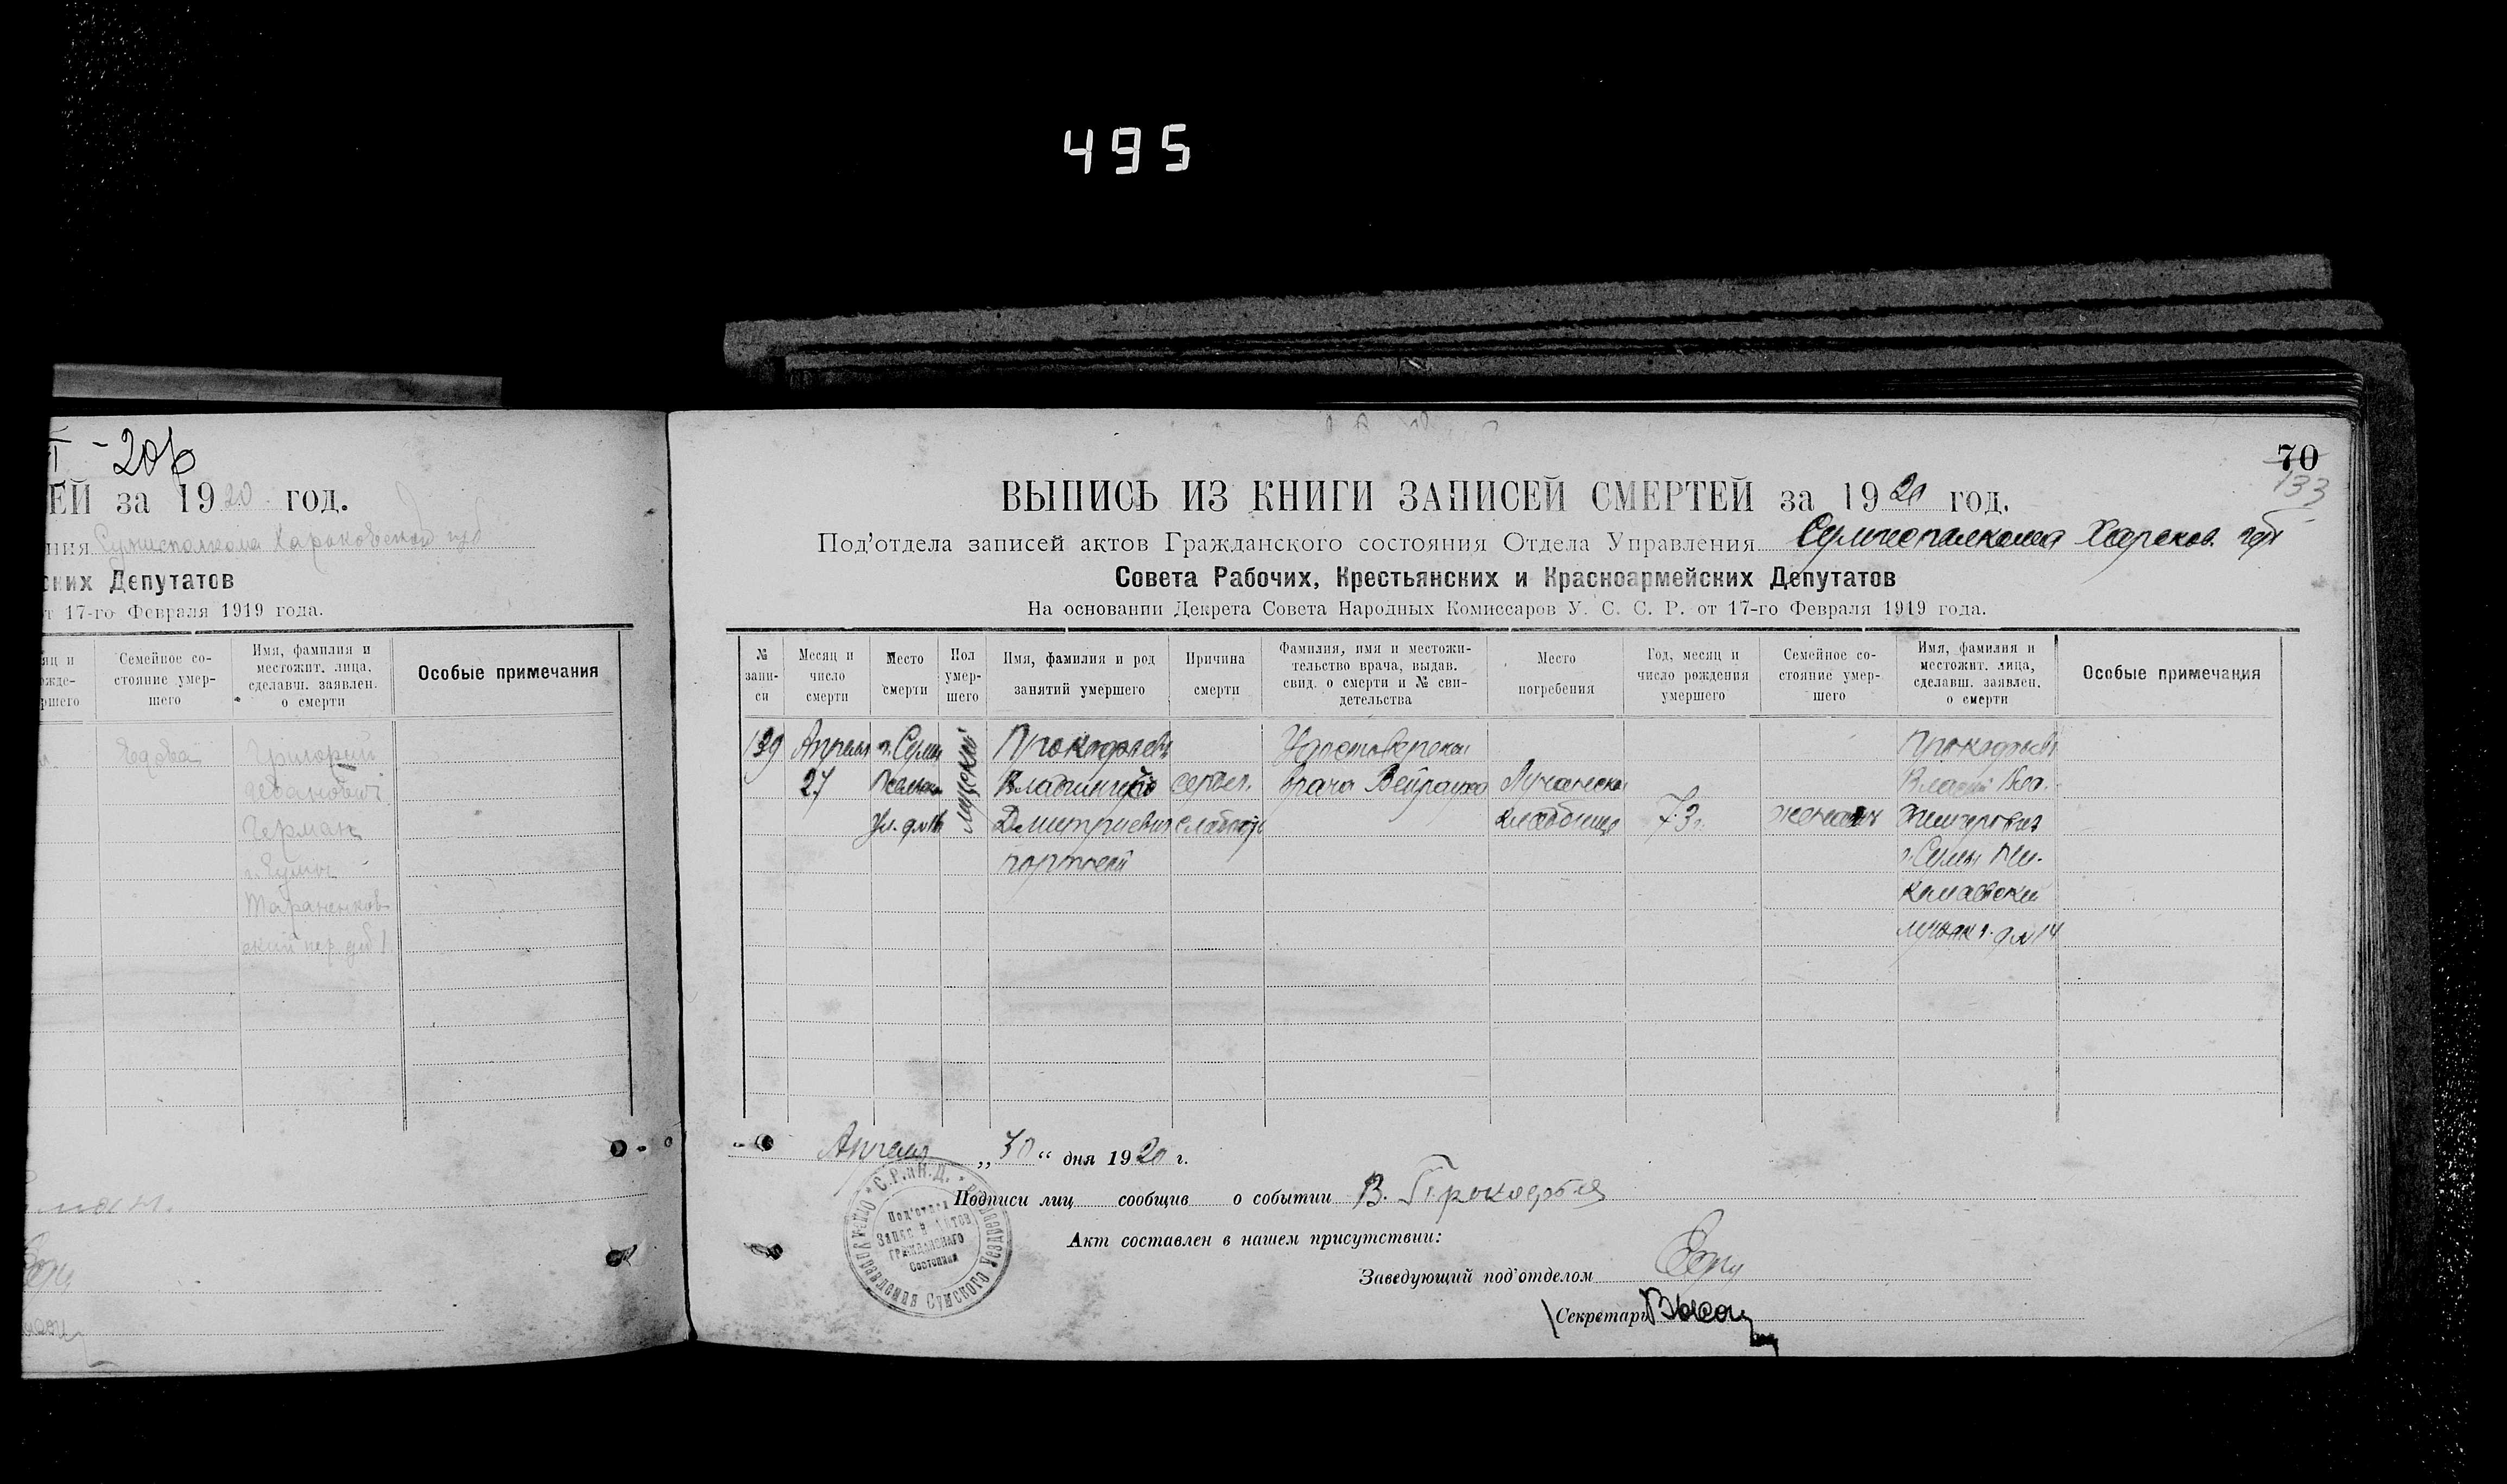 495
-20б
ЕЙ за 1920 год.
ния Сумисполкома Харьковской губ
ских Депутатов
т 17-го Февраля 1919 года.
яц и
ожде-
ршего
Семейное со-
стояние умер-
шего
Имя, фамилия и
местожит. лица,
сделавш. заявлен.
о смерти
Особые примечания
Вдова
Григорий
Иванович
Герман
г. Сумы
Тараненков-
ский пер. д № 1
70
133
ВЫПИСЬ ИЗ КНИГИ ЗАПИСЕЙ СМЕРТЕЙ за 1920 год.
Под'отдела записей актов Гражданского состояния Отдела Управления Сумисполкома Харьков. губ
Совета Рабочих, Крестьянских и Красноармейских Депутатов
На основании Декрета Совета Народных Комиссаров У. С. С. Р. от 17-го Февраля 1919 года.
№
запи-
си
Месяц и
число
смерти
Место
смерти
Пол
умер-
шего
Имя, фамилия и род
занятий умершего
Причина
смерти
Фамилия, имя и местожи-
тельство врача, выдав.
свид. о смерти и № сви-
детельства
Место
погребения
Год, месяц и
число рождения
умершего
Семейное со-
стояние умер-
шего
Имя, фамилия и
местожит. лица,
сделавш. заявлен.
о смерти
Особые примечания
139
Апреля
27
г. Сумы
ул.
мужской
Прокофьев
Владимир
Дмитриевич
портной
сердеч.
слабость
Удостоверение
врача Вейрауха
Лучанское
кладбище
73
женат
Прокофьев
г. Сумы
14
Апреля „30“ дня 1920 г.
Подписи лиц сообщив о событии В. Прокофьев
Акт составлен в нашем присутствии:
Заведующий под'отделом
Секретарь
С.Р.и К.Д.
Отдел Управления Сумского
Под'отдел
Записи Актов
Гражданского
Состояния